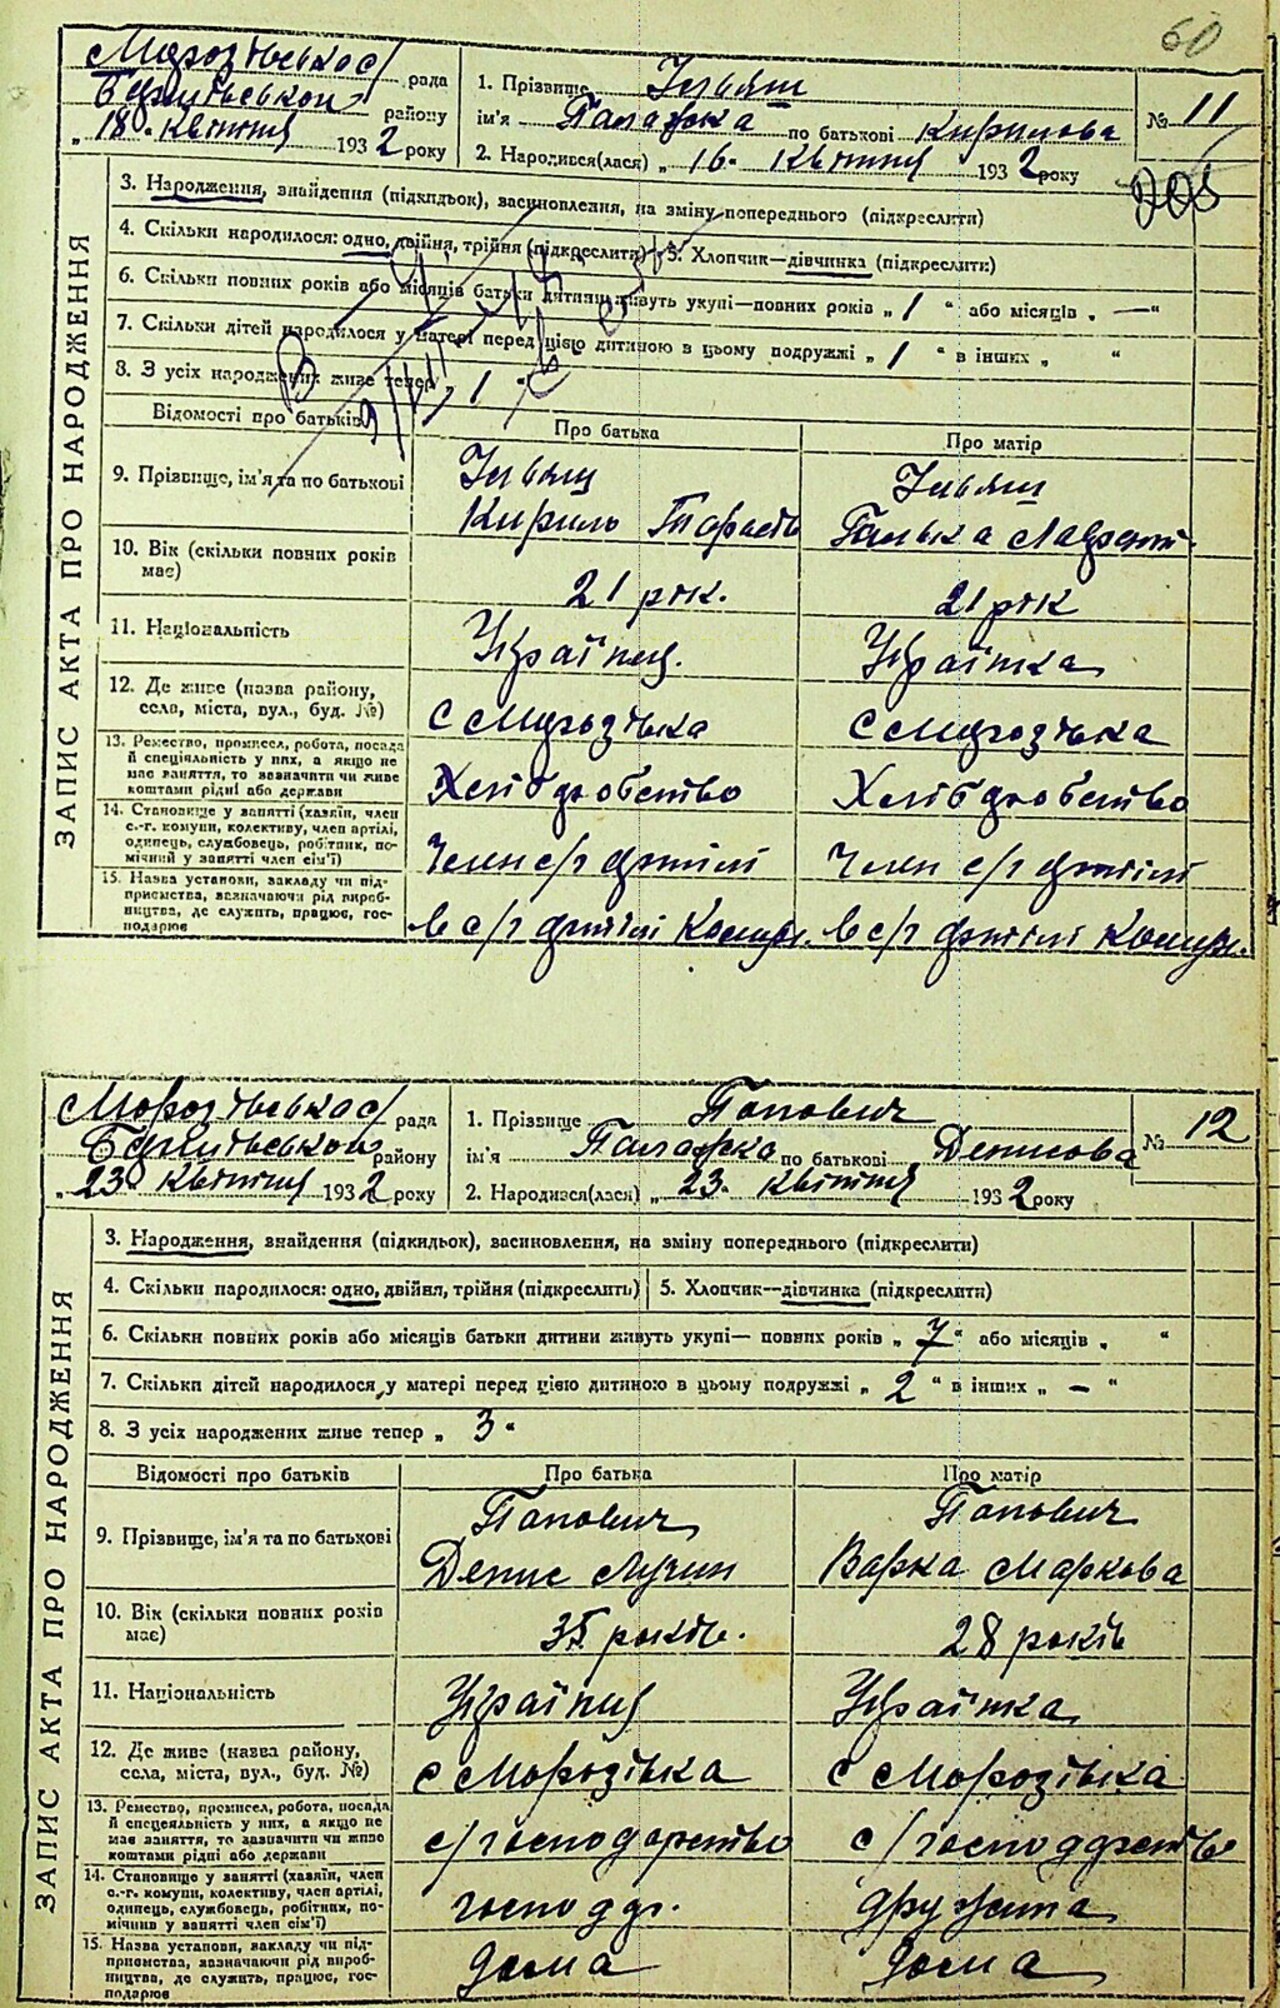 60
Морозівська с/рада
Баришівськой району
„ 18 " квітня 1932 року
1. Прізвище Ільяш
ім'я Палажка по батькові Кирилова
2. Народився(лася) „ 16 " квітня 1932 року
№ 11
ЗАПИС АКТА ПРО НАРОДЖЕННЯ
3. Народження, знайдення (підкидьок), засиновлення, на зміну попереднього (підкреслити)
4. Скільки народилося: одно, двійня, трійня (підкреслити) 5. Хлопчик—дівчинка (підкреслити)
6. Скільки повних років або місяців батьки дитини живуть укупі—повних років „ 1 " або місяців „ — "
7. Скільки дітей народилося у матері перед цією дитиною в цьому подружжі „ 1 " в інших „ "
8. З усіх народжених живе тепер „ 1 "
Відомості про батьків Про батька Про матір
9. Прізвище, ім'я та по батькові
Ільяш Ільяш
Кирило Тарасів Галька Лаврент.
10. Вік (скільки повних років має) 21 рік. 21 рік
11. Національність Українц. Українка
12. Де живе (назва району, села, міста, вул., буд. №) с Морозівка с Морозівка
13. Ремество, промисел, робота, посада й спеціяльність у них, а якщо не має заняття, то зазначити чи живе коштами рідні або держави Хлібдробство Хлібдробство
14. Становище у занятті (хазяїн, член с.-г. комуни, колективу, член артілі, одинець, службовець, робітник, помічний у занятті член сім'ї) Член с/г артілі Член с/г артілі
15. Назва установи, закладу чи підприємства, зазначаючи рід виробництва, де служить, працює, господарює в с/г артілі в с/г артілі
Морозівська с/рада
Баришівськой району
„ 23 " квітня 1932 року
1. Прізвище Попович
ім'я Палажка по батькові Денисова
2. Народився(лася) „ 23 " квітня 1932 року
№ 12
ЗАПИС АКТА ПРО НАРОДЖЕННЯ
3. Народження, знайдення (підкидьок), засиновлення, на зміну попереднього (підкреслити)
4. Скільки народилося: одно, двійня, трійня (підкреслить) 5. Хлопчик—дівчинка (підкреслити)
6. Скільки повних років або місяців батьки дитини живуть укупі— повних років „ 7 " або місяців „ "
7. Скільки дітей народилося у матері перед цією дитиною в цьому подружжі „ 2 " в інших „ — "
8. З усіх народжених живе тепер „ 3 "
Відомості про батьків Про батька Про матір
9. Прізвище, ім'я та по батькові
Попович Попович
Денис Лукин Варка Маркова
10. Вік (скільки повних років має) 35 років. 28 років
11. Національність Українц Українка
12. Де живе (назва району, села, міста, вул., буд. №) с Морозівка с Морозівка
13. Ремество, промисел, робота, посада й спецеяльність у них, а якщо не має заняття, то зазначити чи живе коштами рідні або держави с/господарство с/господарство
14. Становище у занятті (хазяїн, член с.-г. комуни, колективу, член артілі, одинець, службовець, робітник, помічник у занятті член сім'ї) господар. дружина
15. Назва установи, закладу чи підприємства, зазначаючи рід виробництва, де служить, працює, господарює дома дома